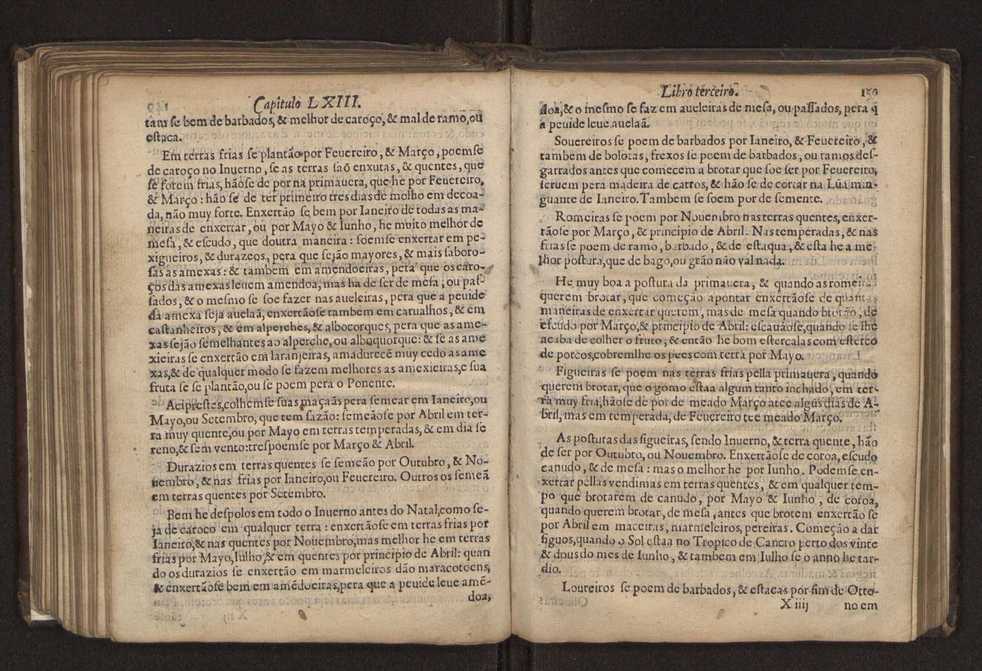 Capitulo LXIII.
tam se bem de barbados, & melhor de caroço, & mal de ramo, oũ
estaca.
Em terras frias se plantão por Feuereiro, & Março, poemse
de caroço no Inuerno, se as terras saõ enxutas, & quentes, que
se forem frias, hãose de por na primauera, que he por Feuereiro,
& Março: hão se de ter primeiro tres dias de molho em decoa-
da, não muy forte. Enxertão se bem por Ianeiro de todas as ma-
neiras de enxertar, ou por Mayo & Iunho, he muito melhor de
mesa, & escudo, que doutra maneira: soemse enxertar em pe-
xigueiros, & durazeos, pera que sejão mayores, & mais saboro-
sas as amexas: & tambem em amendoeiras, pera que os caro-
ços das amexas leuem amendoa, mas ha de ser de mesa, ou pas-
sados, & o mesmo se soe fazer nas aueleiras, pera que a peuide
da amexa seja auelaã, enxertãose tambem em carualhos, & em
castanheiros, & em alperches, & albocorques, pera que as ame-
xas sejão semelhantes ao alperche, ou albuquorque: & se as ame
xieiras se enxertão em laranjeiras, amadurecẽ muy cedo as ame
xas, & de qualquer modo se fazem melhores as amexieiras, e sua
fruta se se plantão, ou se poem pera o Ponente.
Aciprestes, colhemse suas maçaãs pera semear em Ianeiro, ou
Mayo, ou Setembro, que tem sazão: semeãose por Abril em ter-
ra muy quente, ou por Mayo em terras temperadas, & em dia se
reno, & sem vento: trespoemse por Março & Abril.
Durazios em terras quentes se semeão por Outubro, & No-
uembro, & nas frias por Ianeiro, ou Feuereiro. Outros os semeã
em terras quentes por Setembro.
Bem he despolos em todo o Inuerno antes do Natal, como se-
ja de caroco em qualquer terra: enxertãose em terras frias por
Ianeiro, & nas quentes por Nouembro, mas melhor he em terras
frias por Mayo, Iulho, & em quentes por principio de Abril: quan
do os durazios se enxertão em marmeleiros dão maracotoens,
& enxertãose bem em amẽdoeiras, pera que a peuide leue amẽ-
doa,
Libro terceiro. 159
doa, & o mesmo se faz em aueleiras de mesa, ou passados, pera q̃
a peuide leue auelaã.
Souereiros se poem de barbados por Ianeiro, & Feuereiro, &
tambem de bolotas, frexos se poem de barbados, ou ramos des-
garrados antes que comecem a brotar que soe ser por Feuereiro,
seruem pera madeira de carros, & hão se de cortar na Lũa min-
guante de Ianeiro. Tambem se soem por de semente.
Romeiras se poem por Nouembro nas terras quentes, enxer-
tãose por Março, & principio de Abril. Nas temperadas, & nas
frias se poem de ramo, barbado, & de estaqua, & esta he a me-
lhor postura, que de bago, ou grão não val nada.
He muy boa a postura da primauera, & quando as romeiras
querem brotar, que começão apontar enxertãose de quantas
maneiras de enxertar querem, mas de mesa quando brotão, de
escudo por Março, & principio de Abril: escauãose, quando se lhe
acaba de colher o fruto, & então he bom estercalas com esterco
de porcos, cobremlhe os pees com terra por Mayo.
Figueiras se poem nas terras frias pella primauera, quando
querem brotar, que o gomo estaa algum tanto inchado, em ter-
ra muy fria, hãose de por de meado Março atee algũs dias de A-
bril, mas em temperada, de Feuereiro tee meado Março.
As posturas das figueiras, sendo Inuerno, & terra quente, hão
de ser por Outubro, ou Nouembro. Enxertãose de coroa, escudo
canudo, & de mesa: mas o melhor he por Iunho. Podemse en-
xertar pellas vendimas em terras quentes, & em qualquer tem-
po que brotarem de canudo, por Mayo & Iunho, de coroa,
quando querem brotar, de mesa, antes que brotem enxertão se
por Abril em maceiras, marmeleiros, pereiras. Começão a dar
figuos, quando o Sol estaa no Tropico de Cancro perto dos vinte
& dous do mes de Iunho, & tambem em Iulho se o anno he tar-
dio.
Loureiros se poem de barbados, & estacas por fim de Otto-
X iiij no em